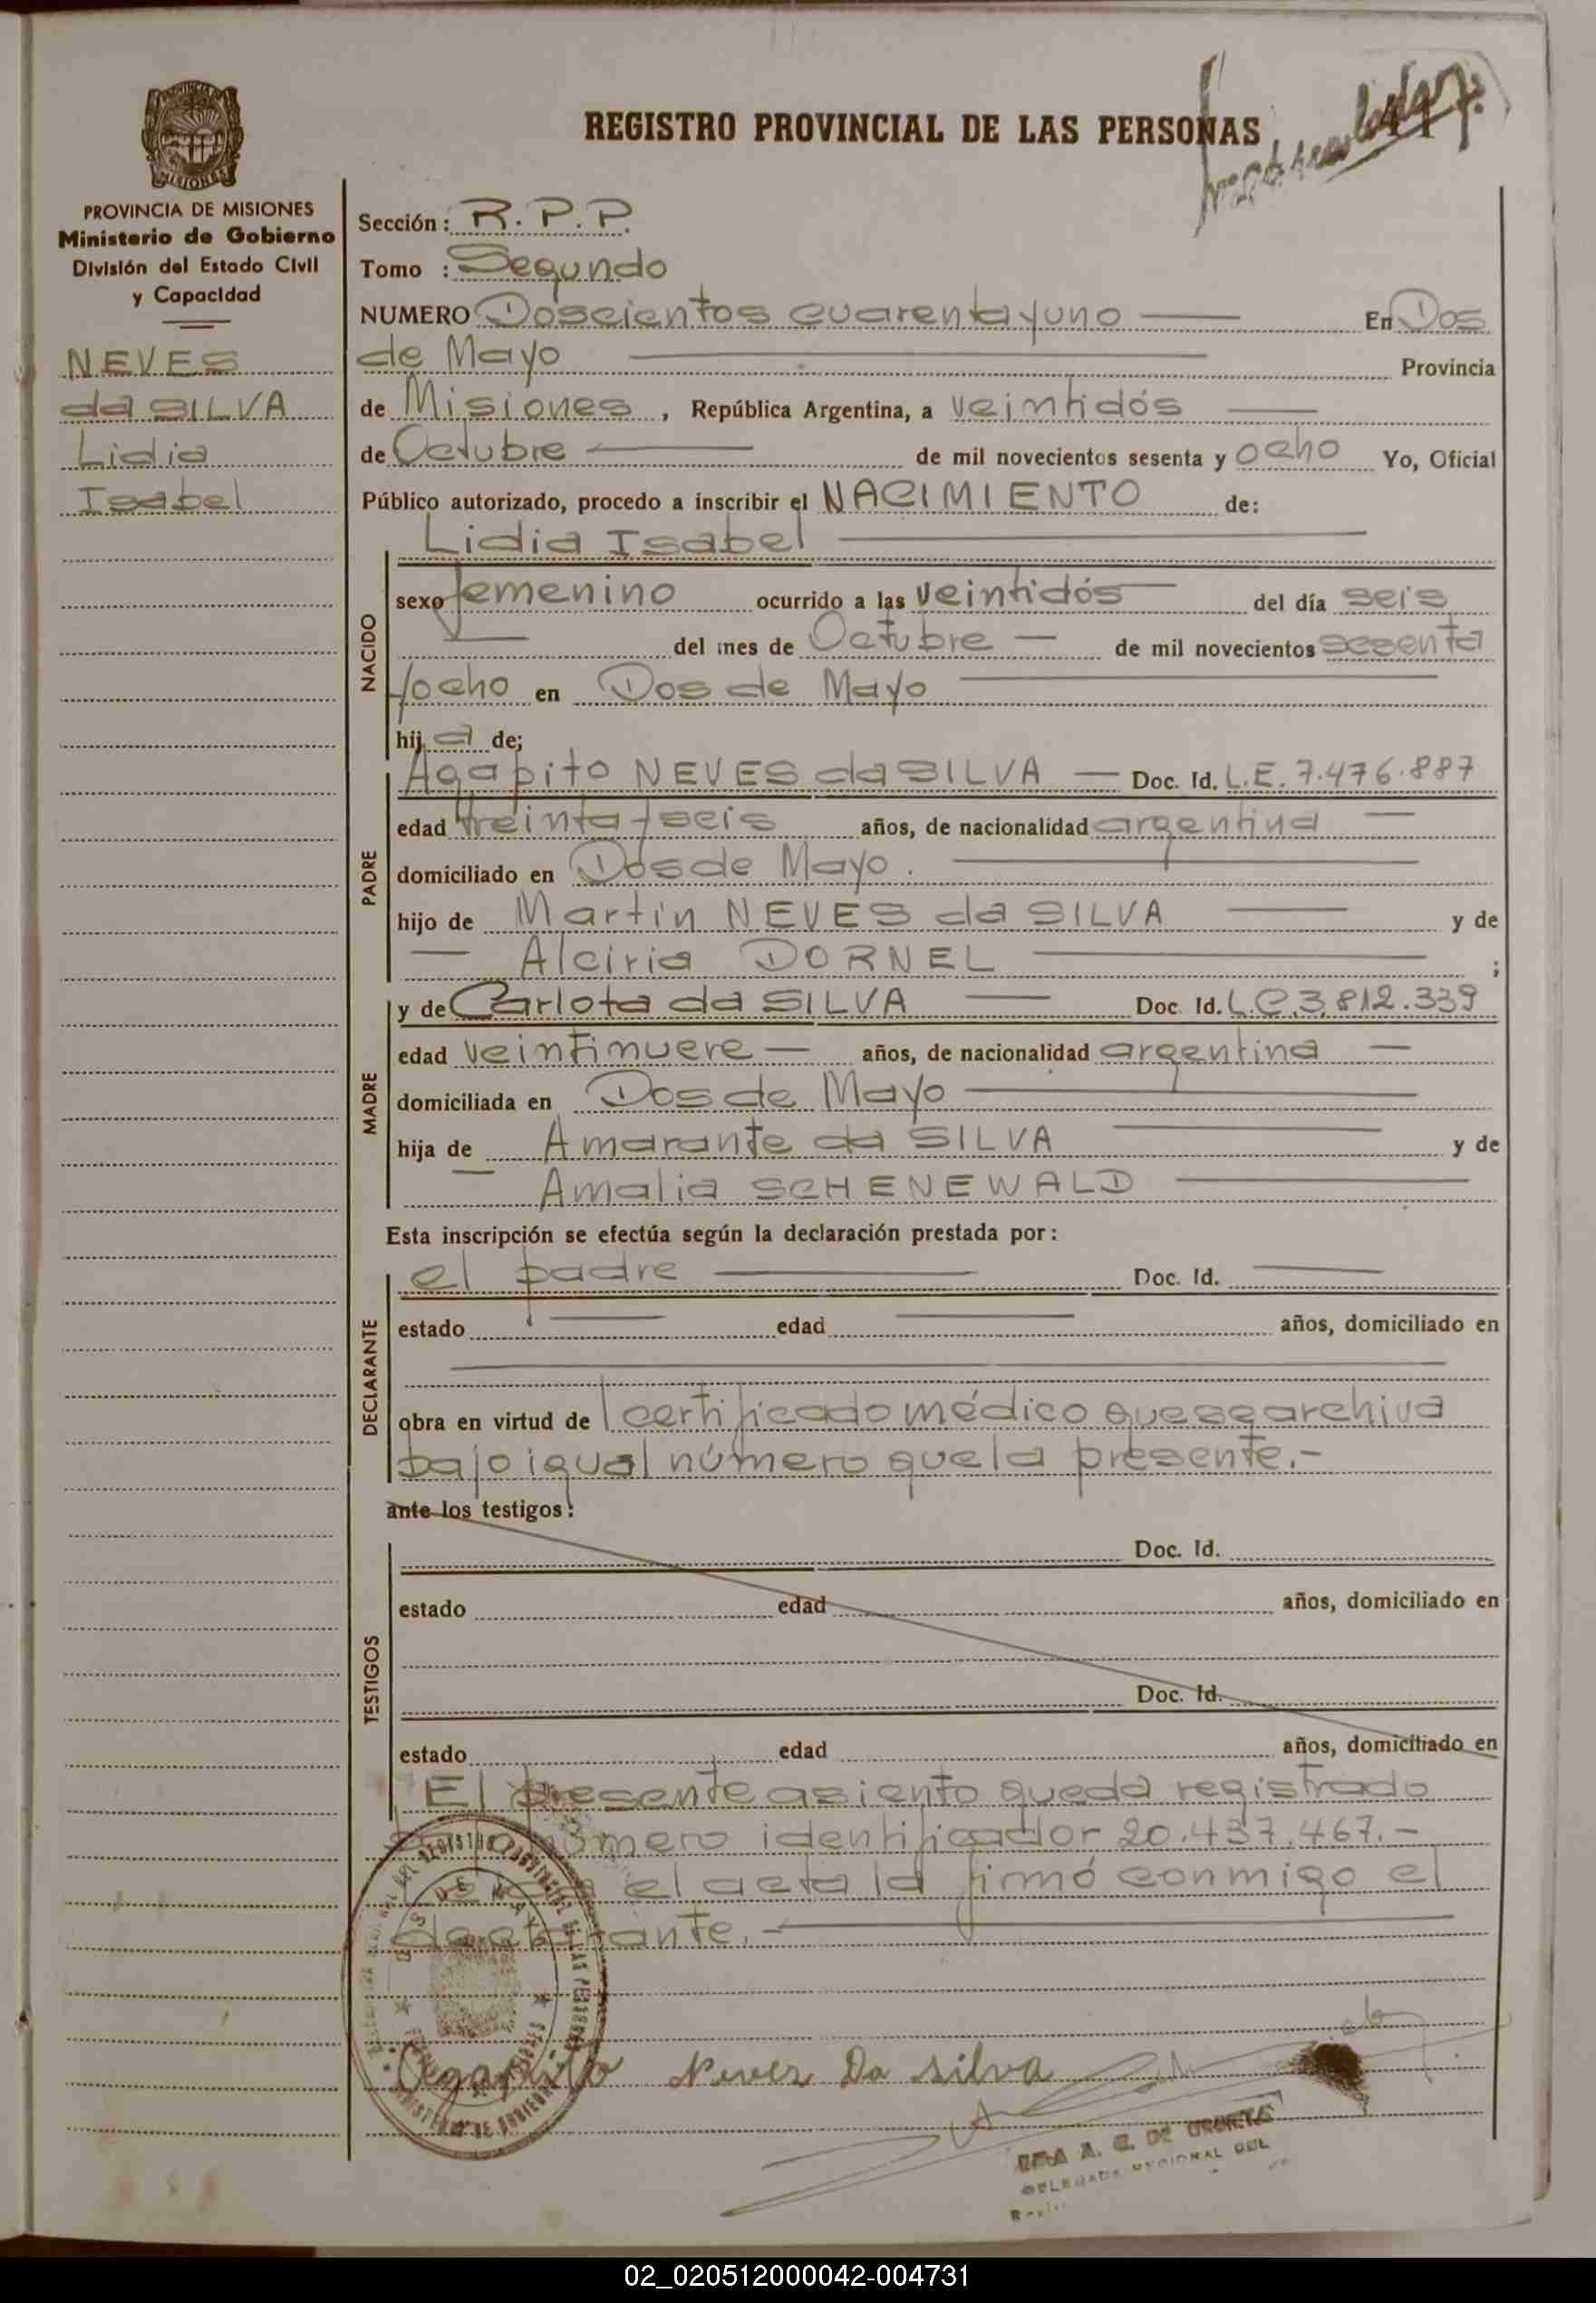 REGISTRO PROVINCIAL DE LAS PERSONAS
PROVINCIA DE MISIONES
Ministerio de Gobierno
División del Estado Civil
y Capacidad
NEVES
da SILVA
Lidia
Isabel
Sección: R.P.P.
Tomo : Segundo
NUMERO Doscientos cuarenta y uno En Dos
de Mayo Provincia
de Misiones, República Argentina, a veintidós
de Octubre de mil novecientos sesenta y ocho Yo, Oficial
Público autorizado, procedo a inscribir el NACIMIENTO de:
Lidia Isabel
NACIDO
sexo femenino ocurrido a las veintidós del día seis
del mes de Octubre de mil novecientos sesenta
y ocho en Dos de Mayo
hija de;
PADRE
Agapito NEVES da SILVA Doc. Id. L.E. 7.476.887
edad treinta y seis años, de nacionalidad argentina
domiciliado en Dos de Mayo.
hijo de Martin NEVES da SILVA y de
Alciria DORNEL ;
MADRE
y de Carlota da SILVA Doc. Id. L.C. 3.812.339
edad veintinueve años, de nacionalidad argentina
domiciliada en Dos de Mayo
hija de Amarante da SILVA y de
Amalia SCHENEWALD
Esta inscripción se efectúa según la declaración prestada por:
DECLARANTE
el padre Doc. Id.
estado edad años, domiciliado en
obra en virtud de l certificado médico que se archiva
bajo igual número que la presente.-
ante los testigos:
TESTIGOS
Doc. Id.
estado edad años, domiciliado en
Doc. Id.
estado edad años, domiciliado en
El presente asiento queda registrado
número identificador 20.437.467.-
el acta la firmó conmigo el
declarante.-
Agapito Neves Da Silva
A. G. DE
DELEGADA REGIONAL DEL
02_020512000042-004731